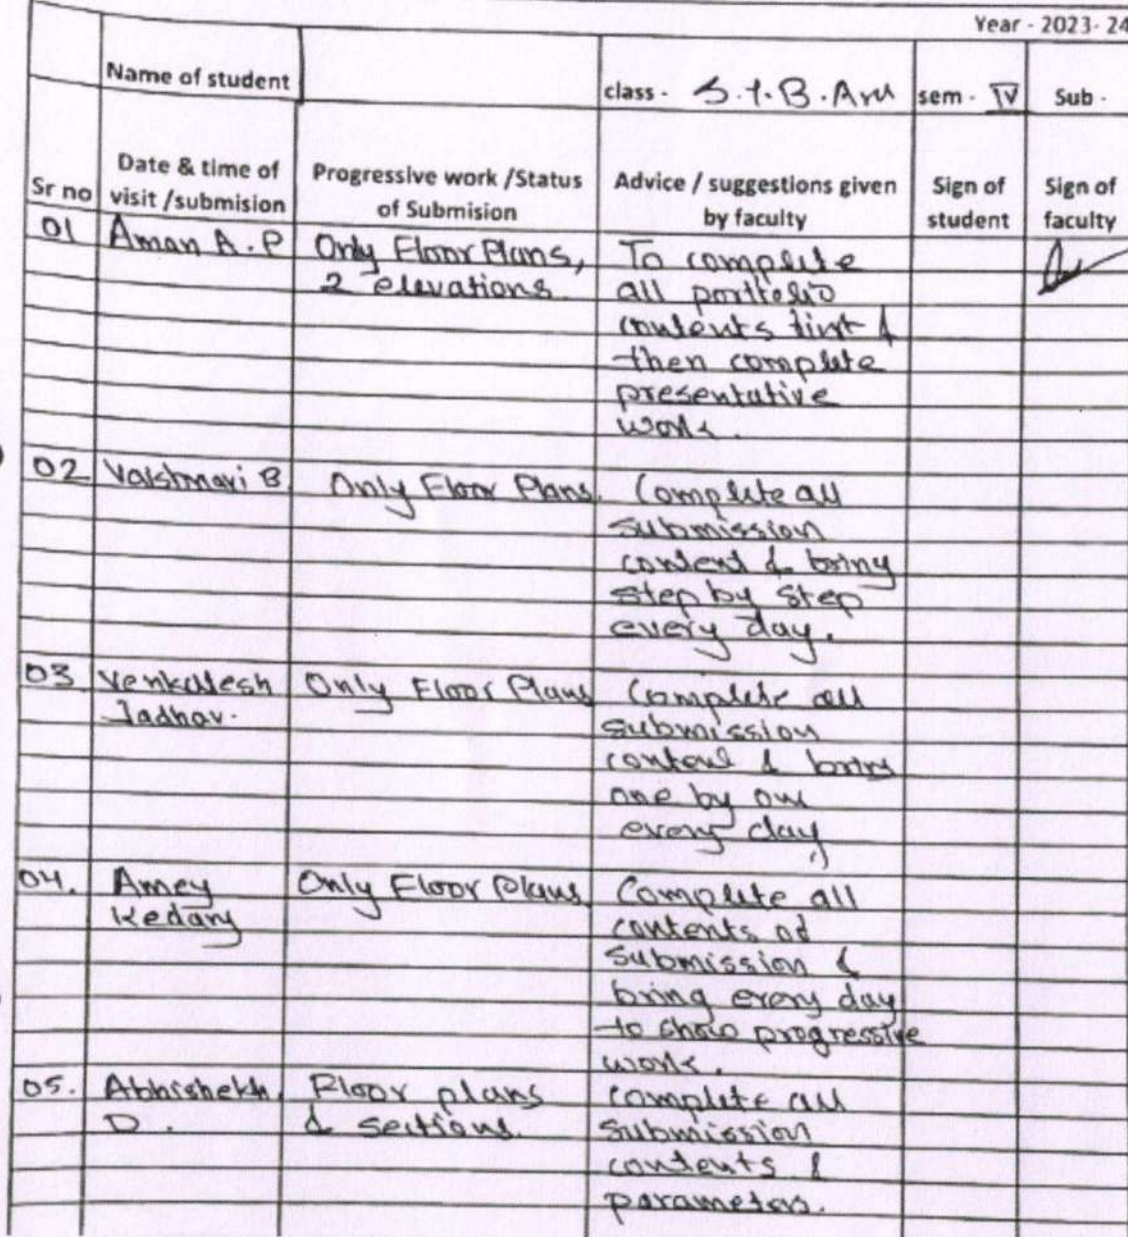 Year - 2023- 24
Name of student class - S.Y.B.Arch sem - IV Sub -
Sr no Date & time of visit /submision Progressive work /Status of Submision Advice / suggestions given by faculty Sign of student Sign of faculty
01 Aman A.P Only Floor Plans, To complete
2 elevations. all portfolio
contents first &
then complete
presentative
work.
02 Vaishnavi B Only Floor Plans. Complete all
submission
content & bring
step by step
every day.
03 Venkatesh Only Floor Plans Complete all
Jadhav. submission
content & bring
one by one
every day
04. Amey Only Floor Plans Complete all
Kedary contents of
submission &
bring every day
to show progressive
work.
05. Abhishekh Floor plans complete all
D. & sections. submission
contents &
parameters.